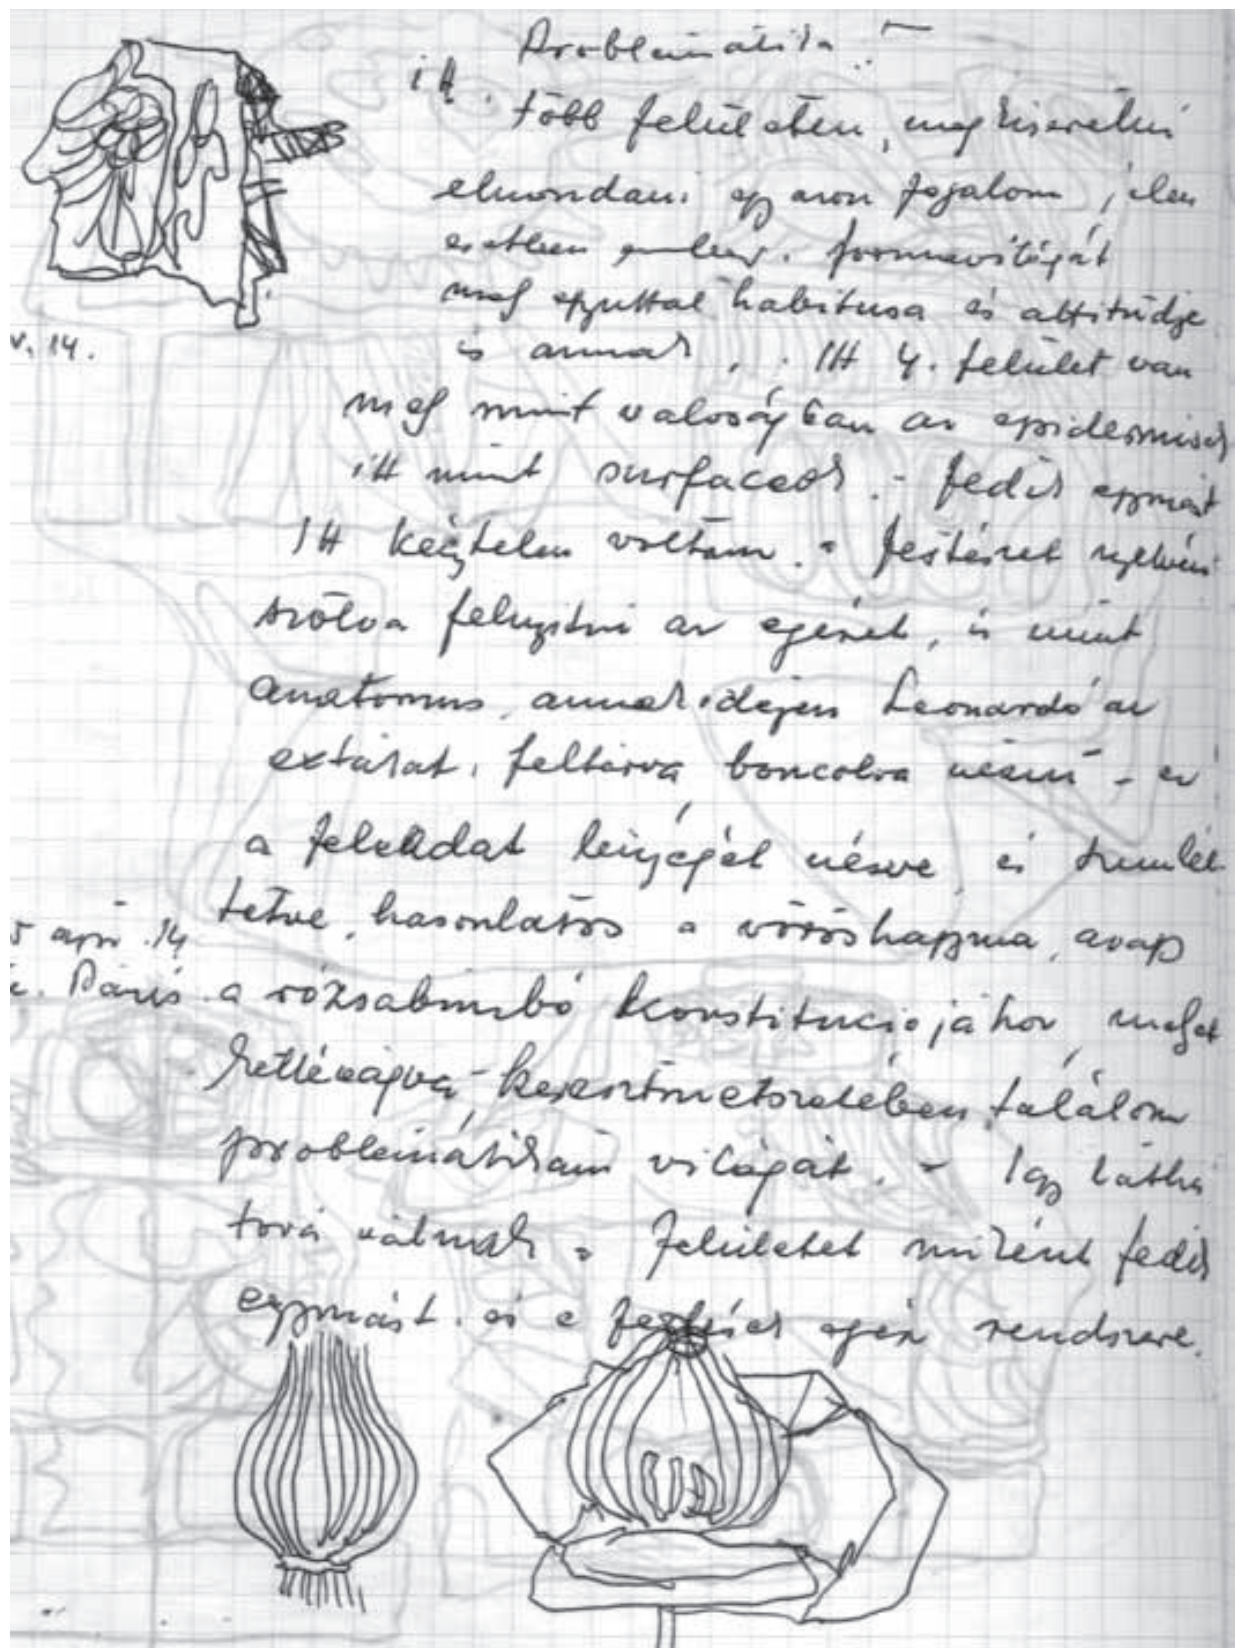 Problemátika :
itt.
több felületen, megkisérelni
elmondani egy azon fogalom jelen
esetben ember. formavilágát
meg egyuttal habitusa és attitüdje
v. 14.
is annak . . itt 4. felület van
meg mint valoságban az epidermisek
itt mint surfaceok . - fedik egymást
itt kégtelen voltam . a festészet nyelvén
szólva felnyitni az egészet, és mint
anatomus annak idején Leonardo az
extázat, feltárva boncolva nézni - ez
a feleAdat lényegét nézve és szemlél
tetve, hasonlatos a vöröshagyma, avagy
5 apr .14
. Páris
a rózsabimbó konstituciojához, melyet
kettévágva keresztmetszetében találom
problemátikám világát. - Igy látha
tová válnak a felületek miként fedik
egymást. és e fedések egész rendszere.